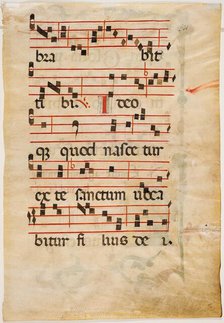 bra bit
ti bi. I deo
qȝ quod nasce tur
ex te sanctum uoca
bitur fi lius de i.